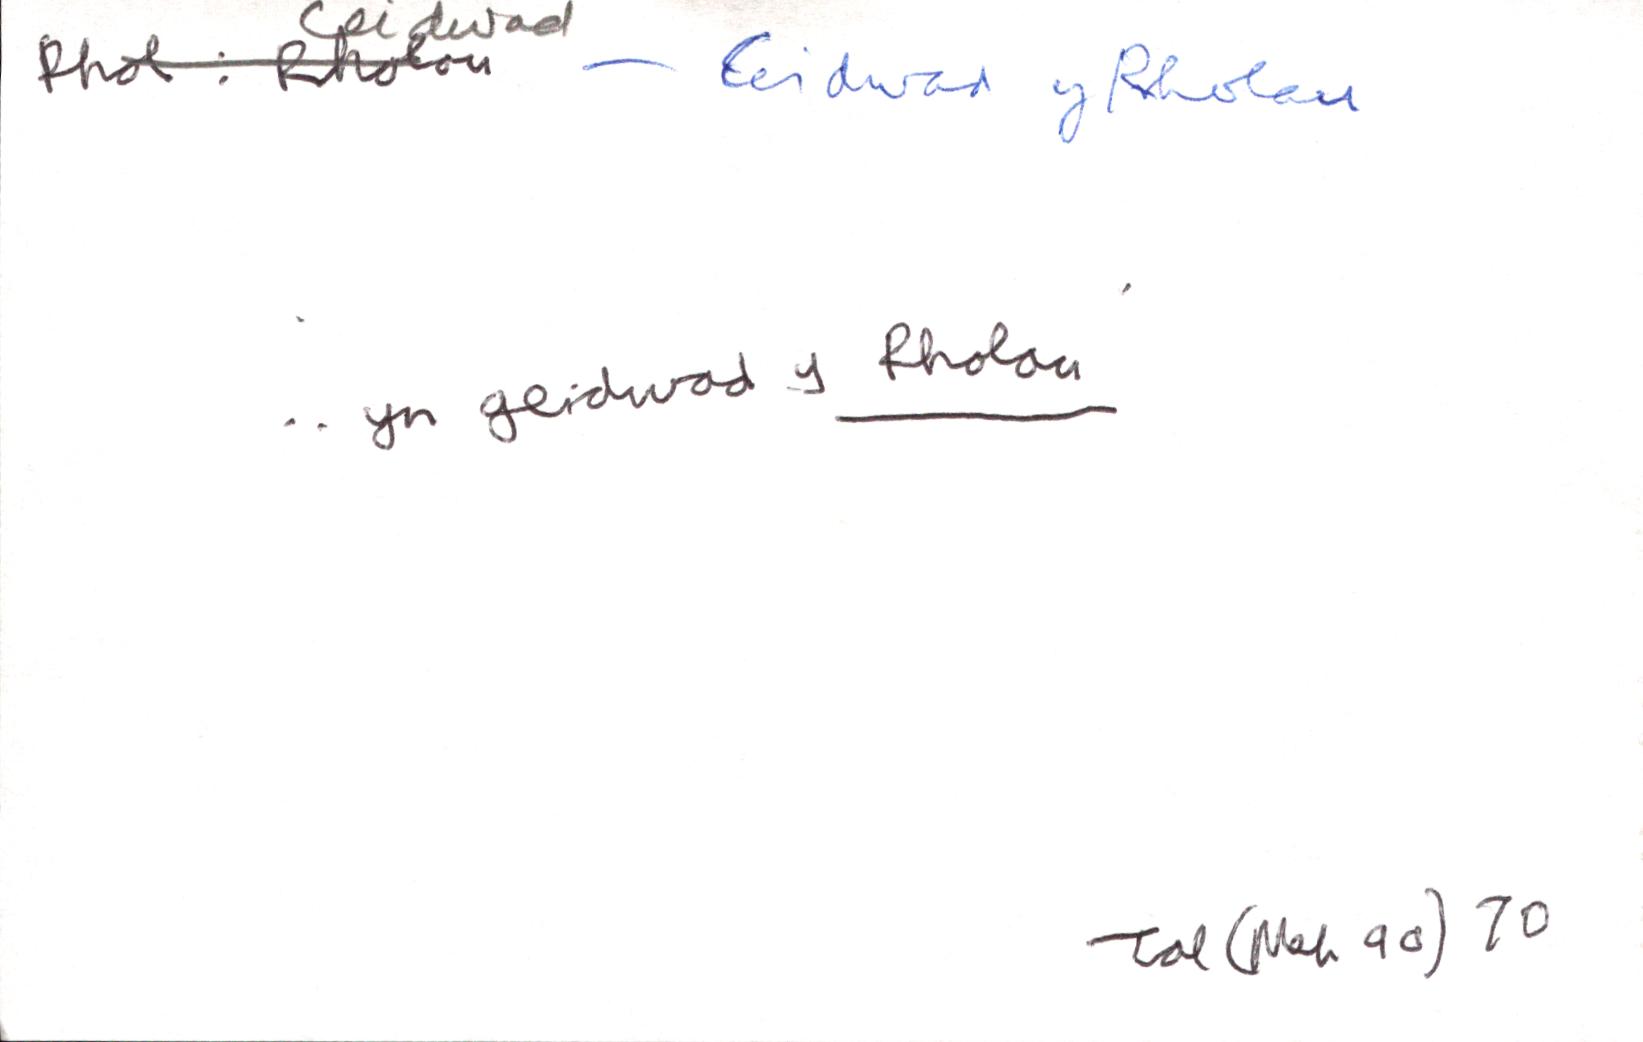 Ceidwad
Rhol : Rholau — Ceidwad y Rholau
.. yn geidwad y Rholau
Tal (Meh 90) 70